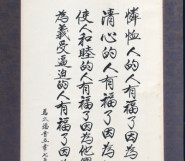 憐恤人的人有福了因為
清心的人有福了因為
使人和睦的人有福了因為他們
為義受逼迫的人有福了因為
馬太福音五章七